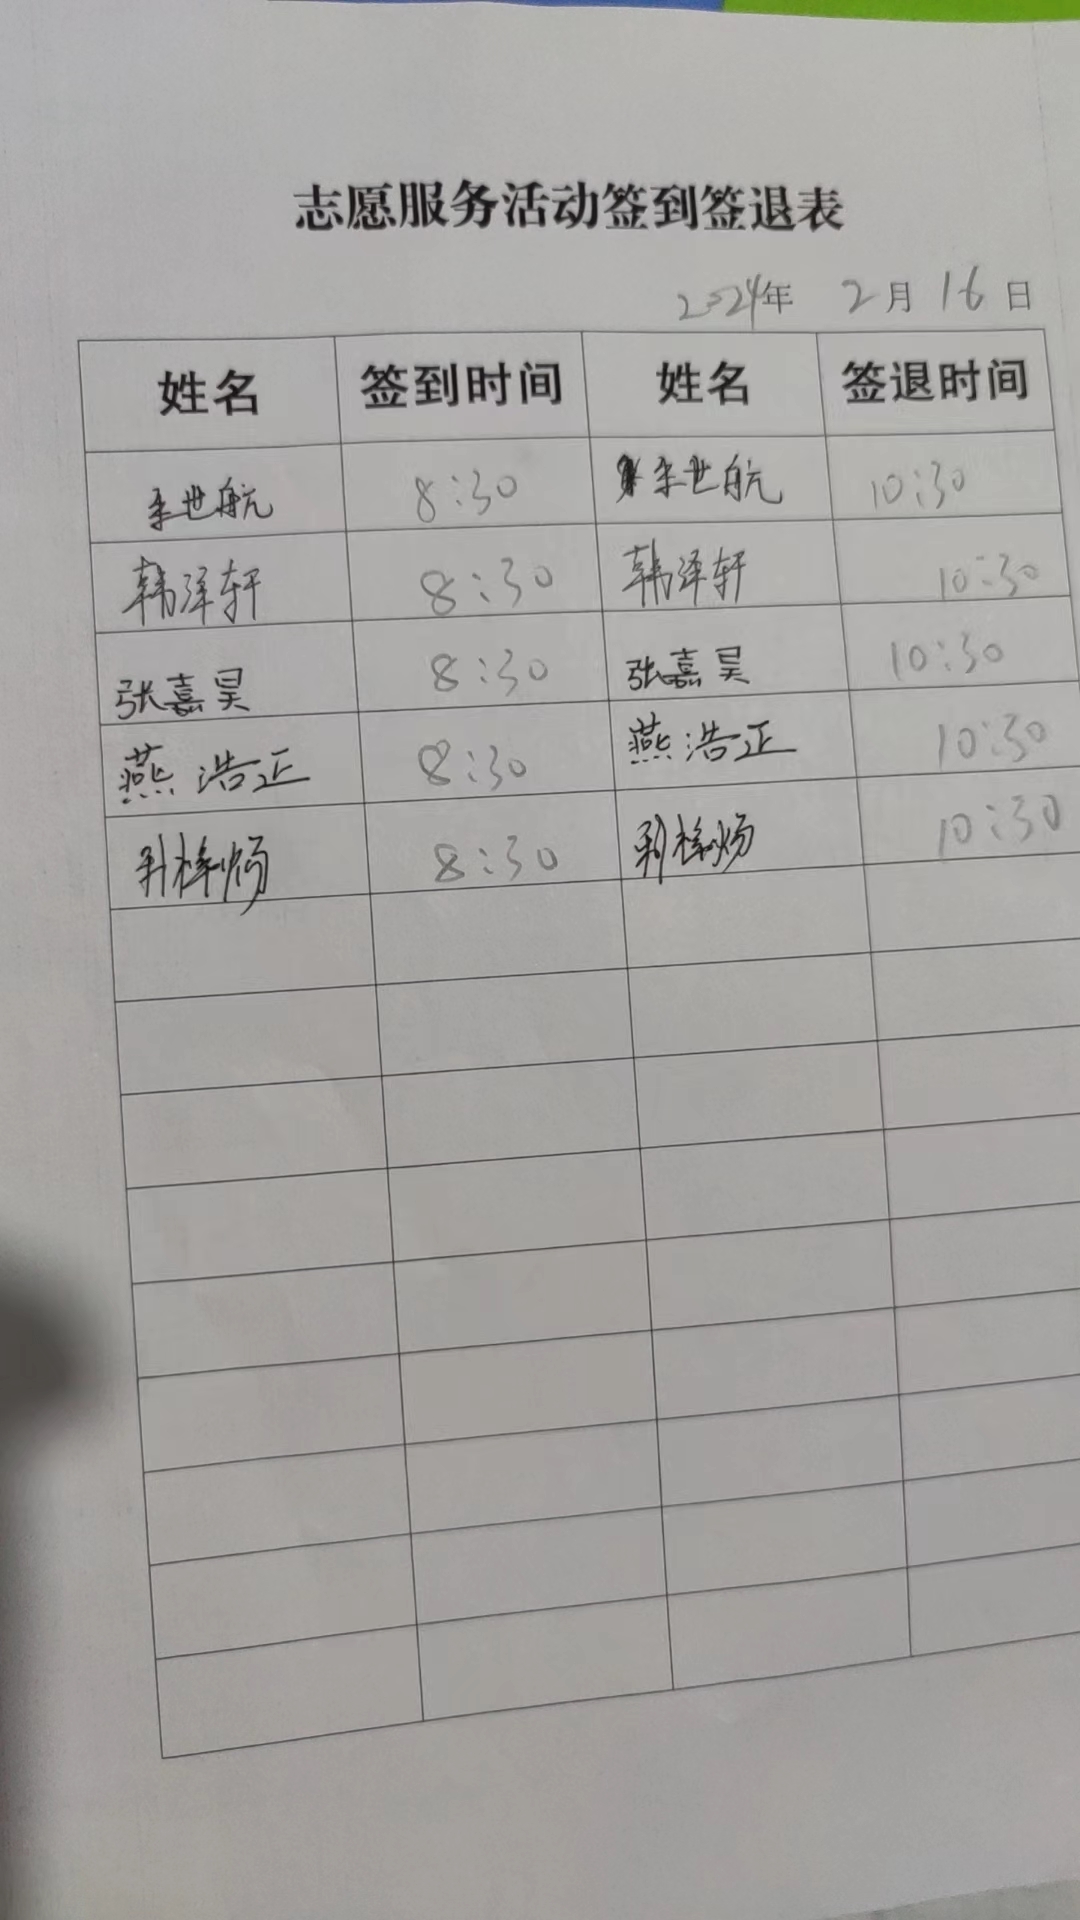 志愿服务活动签到签退表
2024年 2月 16日
姓名 签到时间 姓名 签退时间
世航 8:30 世航 10:30
韩泽轩 8:30 韩泽轩 10:30
张嘉昊 8:30 张嘉昊 10:30
燕浩正 8:30 燕浩正 10:30
8:30 10:30